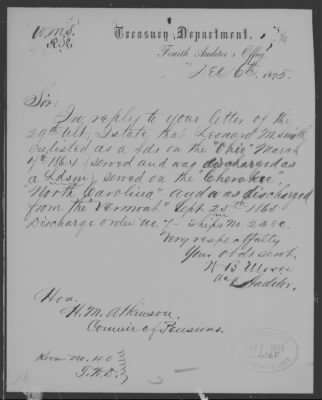 Treasury Department,
Fourth Auditor's Office
Dec 6th, 1875.
Sir:
In reply to your letter of the
29th Ult, I state that Leonard M. Smith
enlisted as a Lds on the "Ohio" March
1864 (served and was discharged as
a Ldsm) served on the "Cherokee",
"North Carolina" and was discharged
from the "Vermont" Sept 25th 1865
Discharge order No. 7 - Ships No.
Very respectfully
Your obt servt,
Auditor.
Hon.
H. M. Atkinson,
Commr of Pensions.
Room No. 40